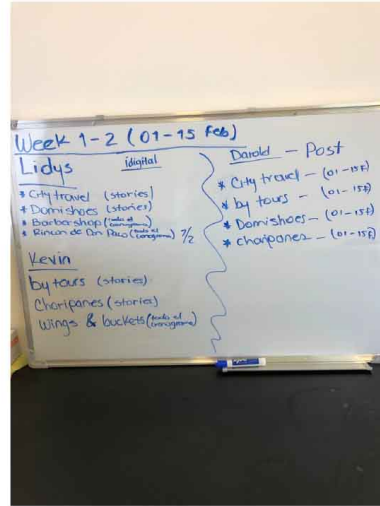 Week 1-2 (01-15 Feb)
Lidys idigital
* City travel (stories)
* Domishoes (stories)
* Barbershop (todo el cronograma)
* Rincon de Don Paco (todo el cronograma) 7/2
Kevin
by tours (stories)
Choripanes (stories)
Wings & buckets (todo el cronograma)
Darold - Post
* City travel - (01-15F)
* by tours - (01-15F)
* Domishoes - (01-15F)
* choripanes - (01-15F)